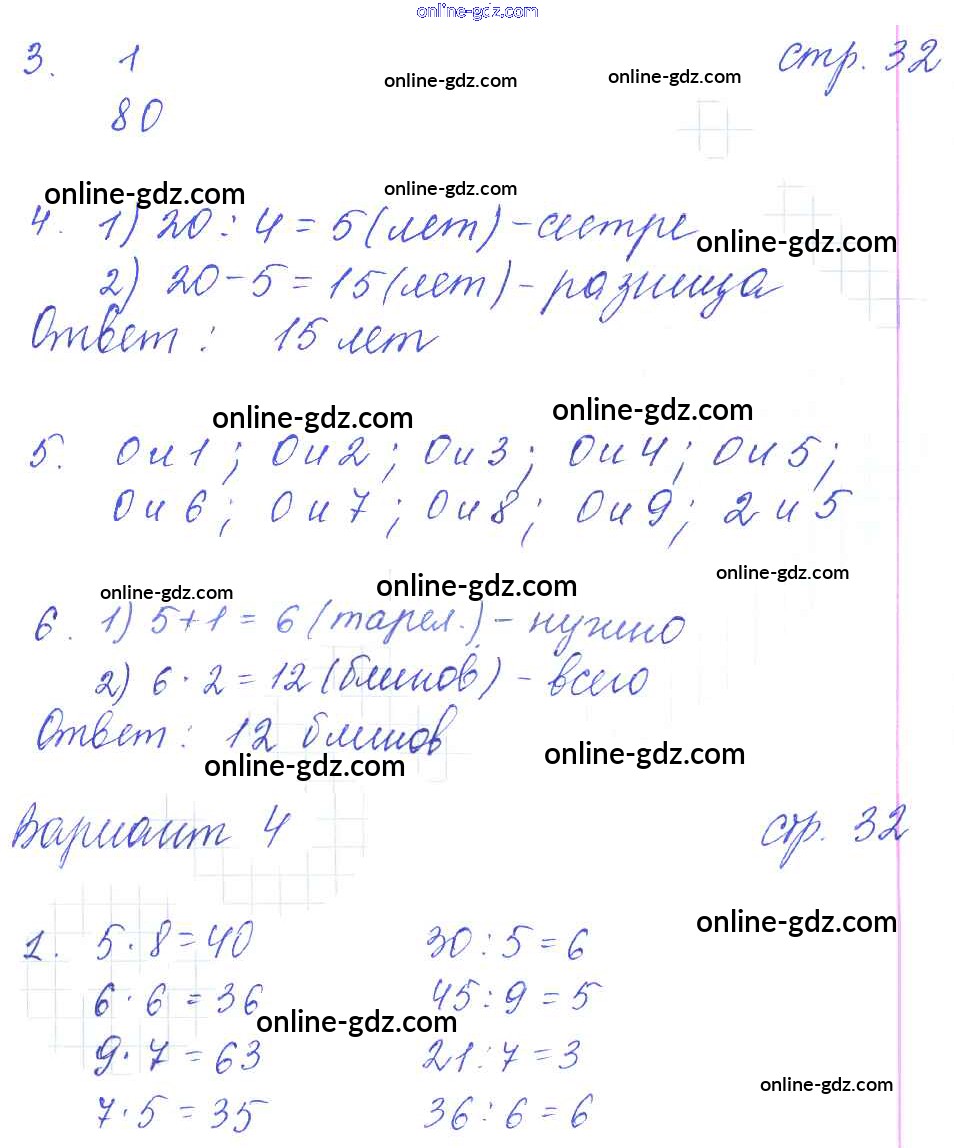 online-gdz.com
3. 1 стр. 32
online-gdz.com online-gdz.com
80
online-gdz.com online-gdz.com
4. 1) 20 : 4 = 5 (лет) - сестре
online-gdz.com
2) 20 - 5 = 15 (лет) - разница
Ответ : 15 лет
online-gdz.com online-gdz.com
5. 0 и 1 ; 0 и 2 ; 0 и 3 ; 0 и 4 ; 0 и 5 ;
0 и 6 ; 0 и 7 ; 0 и 8 ; 0 и 9 ; 2 и 5
online-gdz.com online-gdz.com online-gdz.com
6. 1) 5 + 1 = 6 (тарел.) - нужно
2) 6 · 2 = 12 (блинов) - всего
Ответ : 12 блинов
online-gdz.com online-gdz.com
Вариант 4 стр. 32
online-gdz.com
1. 5 · 8 = 40 30 : 5 = 6
6 · 6 = 36 45 : 9 = 5
online-gdz.com
9 · 7 = 63 21 : 7 = 3
online-gdz.com
7 · 5 = 35 36 : 6 = 6